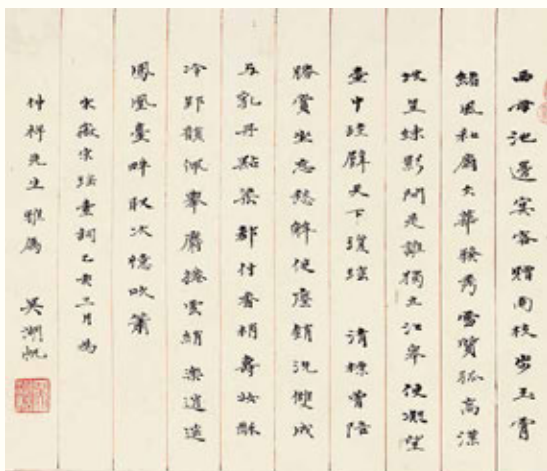 西母池邊宴客贈南枝步玉霄
緒風和扇氷華發秀雪質孤高漢
陂呈練影問是誰獨立江皋便凝望
壺中珪璧天下瓊瑤 清標曾陪
勝賞坐忘愁解使塵銷況雙成
与乳丹點染都付香梢壽妝酥
冷郢韻佩舉麝捲雲綃樂逍遙
鳳凰臺畔取次憶吹簫
宋徽宗瑤臺詞乙亥三月為
仲祥先生雅屬 吳湖帆